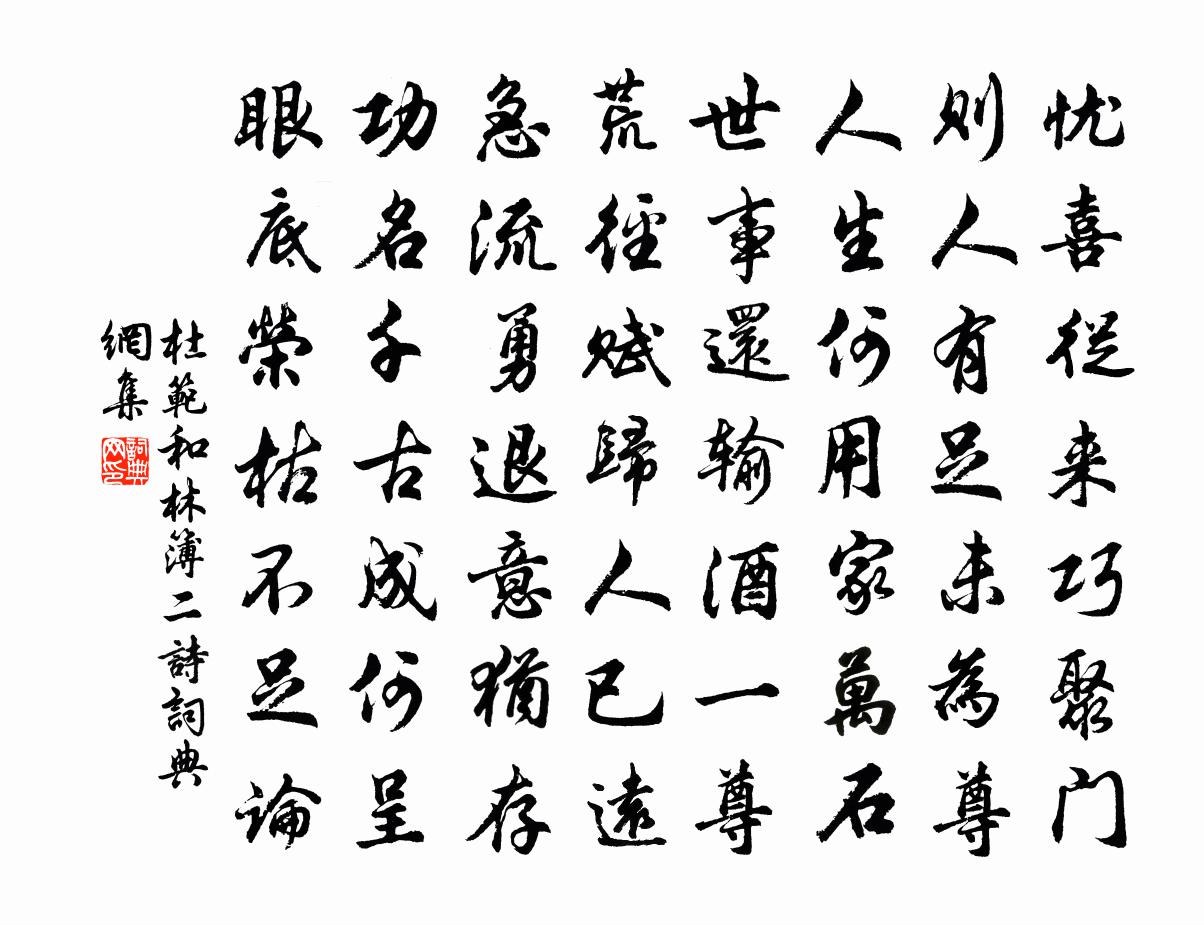 忧喜従来巧聚门
则人有足未為尊
人生何用家萬石
世事還输酒一尊
荒徑赋歸人已遠
急流勇退意猶存
功名千古成何呈
眼底榮枯不足論
杜範和林簿二詩詞典
網集
詞典
网印